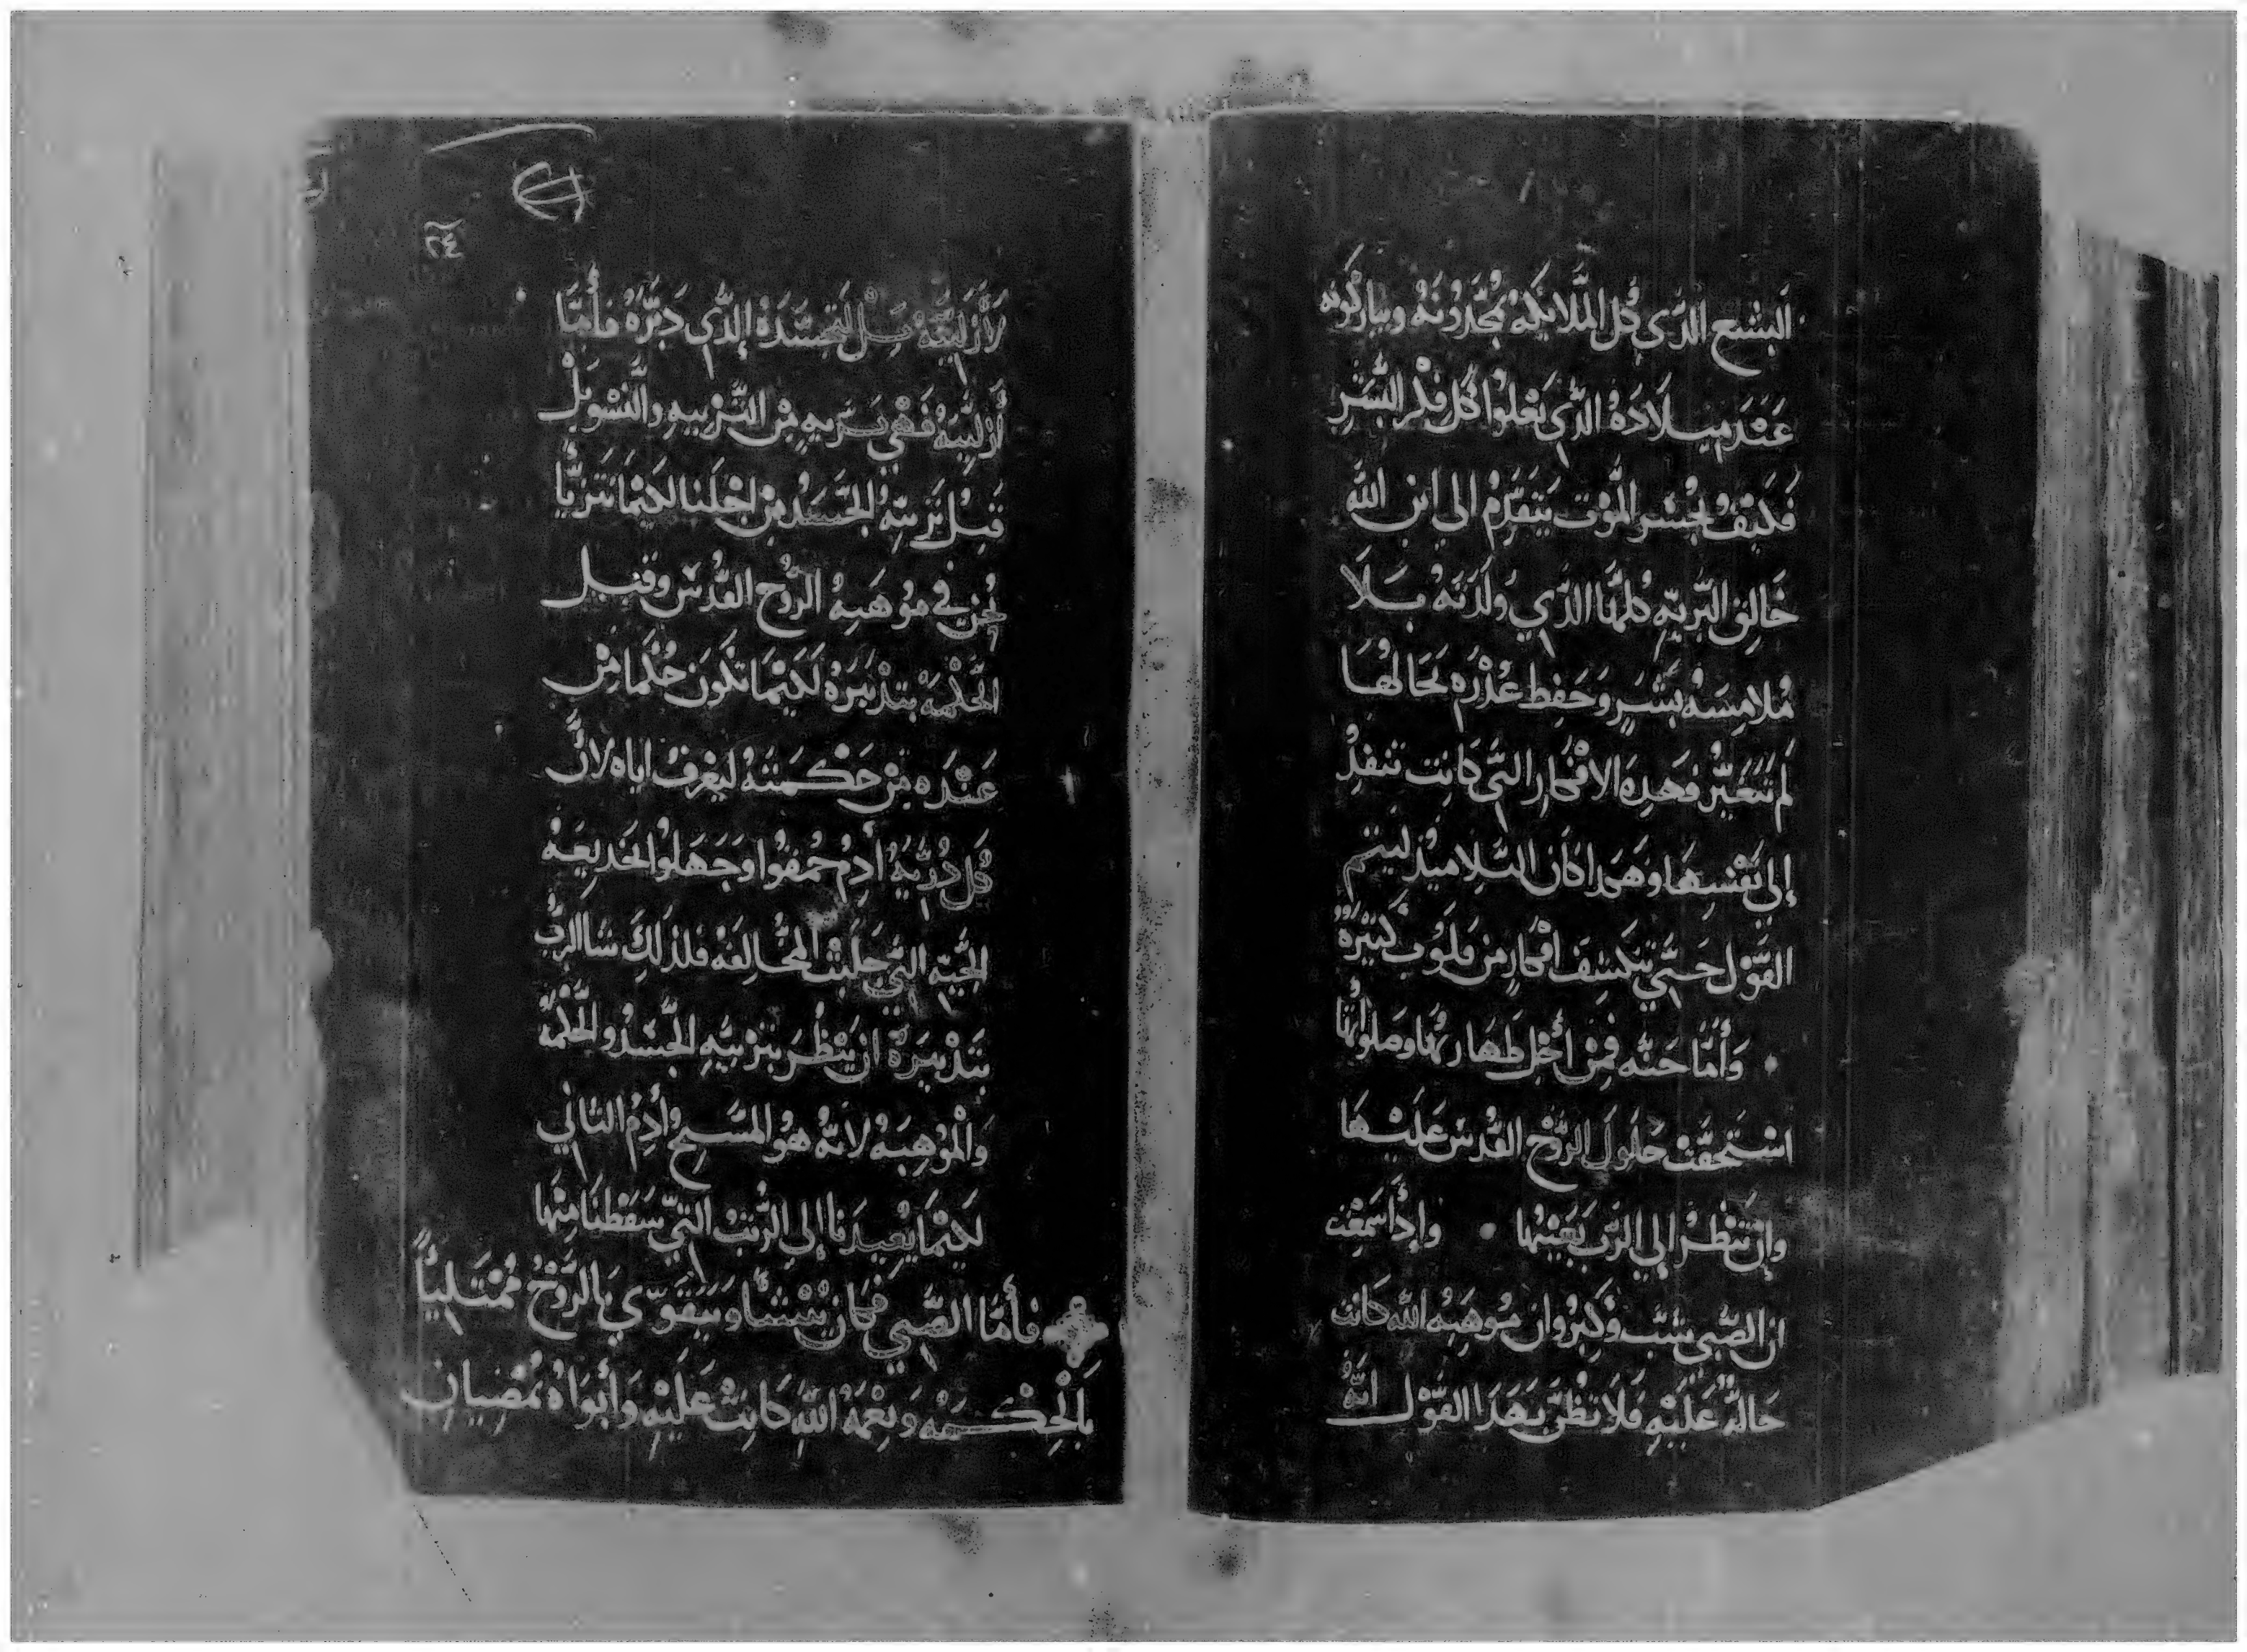 البشع الدى كُل المَلايكَه يُمجّدُونَهُ ويباركونه
عَنَد ميلَادَهُ الدّي يَعْلُوا كُل فِكر البَشَر
فَكَيْفُ يجْسُر المَوْت يَتَقَدّمْ الى ابن الله
خَالِق البَريّه كُلهَا الدّي وَلَدَتهُ بَلَا
مُلامِسَهْ بَشَرٍ وَحَفِظ عُذْرَه بحَالهَا
لَم تَتَغَيّرْ وَهَدِه الافْكار التّي كَانِت تنفدْ
إلى نَفْسِهَا وَهَدا كَان التلاميذ ليتم
القَوْل حَتّي تنكَشِف افْكار من قلوب كَثيْرَهْ
وَأمّا حَنّه فِمنْ أجْل طَهَارتهَا وصلواتهَا
اسْتَحَقّتْ حَلُولَ الرُّوْح القُدسْ عَلَيْهَا
وَانْ تَنْظُرْ إلي الرّب بَعَيْنَيْهَا وَإدَاسَمِعْت
ان الصّبي يشبّ وَكَبرُ وان مُوهَبهُ الله كَانت
حَالّهْ عَلَيْهِ فَلا تظُنّ بَهَدَا القَوْل انّهُ
٢٤
لأزَليّتَهُ بَل لتجَسّدَهُ الدّي دَبّرَهُ فأمّا
أزَليتهُ فَهْي بَريه مِنْ التّرْبيهِ وَالنشْو بَلْ
قَبِلْ تَرْبيَّهُ الجَسَدْ مِنْ اجْلَنا لَكَيْمَا نَتَرَبّا
نُحْن في مُوْهَبهُ الرُّوْح القُدُسْ وقبل
الحكْمَهْ بتدْبَيرَهْ لَكَيْمَا تَكُونَ حُكْمَا مِنْ
عَنْدَه مِنْ حَكْمَتهُ ليَعْرف اياه لانّ
كُل دُرّيهُ أدمْ حُمقوا وَجَهَلوُا الخَديعَهْ
الحَيّه التي جَلَبتْ المخَالِفَهْ فلذلكَ شا الرّبُ
بَتدْبيرَهْ ان يَنْظُر بَتربيّهِ الجّسَدْ والحَكْمَهْ
وَالْمُوْهِبَهُ لانّه هُوَ المسّيح وأدمُ التاني
لَكَيْمَا يُعيدنا إلي الرّتبْ التّيّ سَقَطْنَا مِنْهَا
فأمّا الصّبي فكان يَنْشَا وَيتَقَوّي بالرّوْحُ مُمْتَلياً
بَالْحِكْمَهْ وَنِعْمَهُ الله كَانِتْ عَلَيْهِ وَأبَوَاهُ يمْضيان